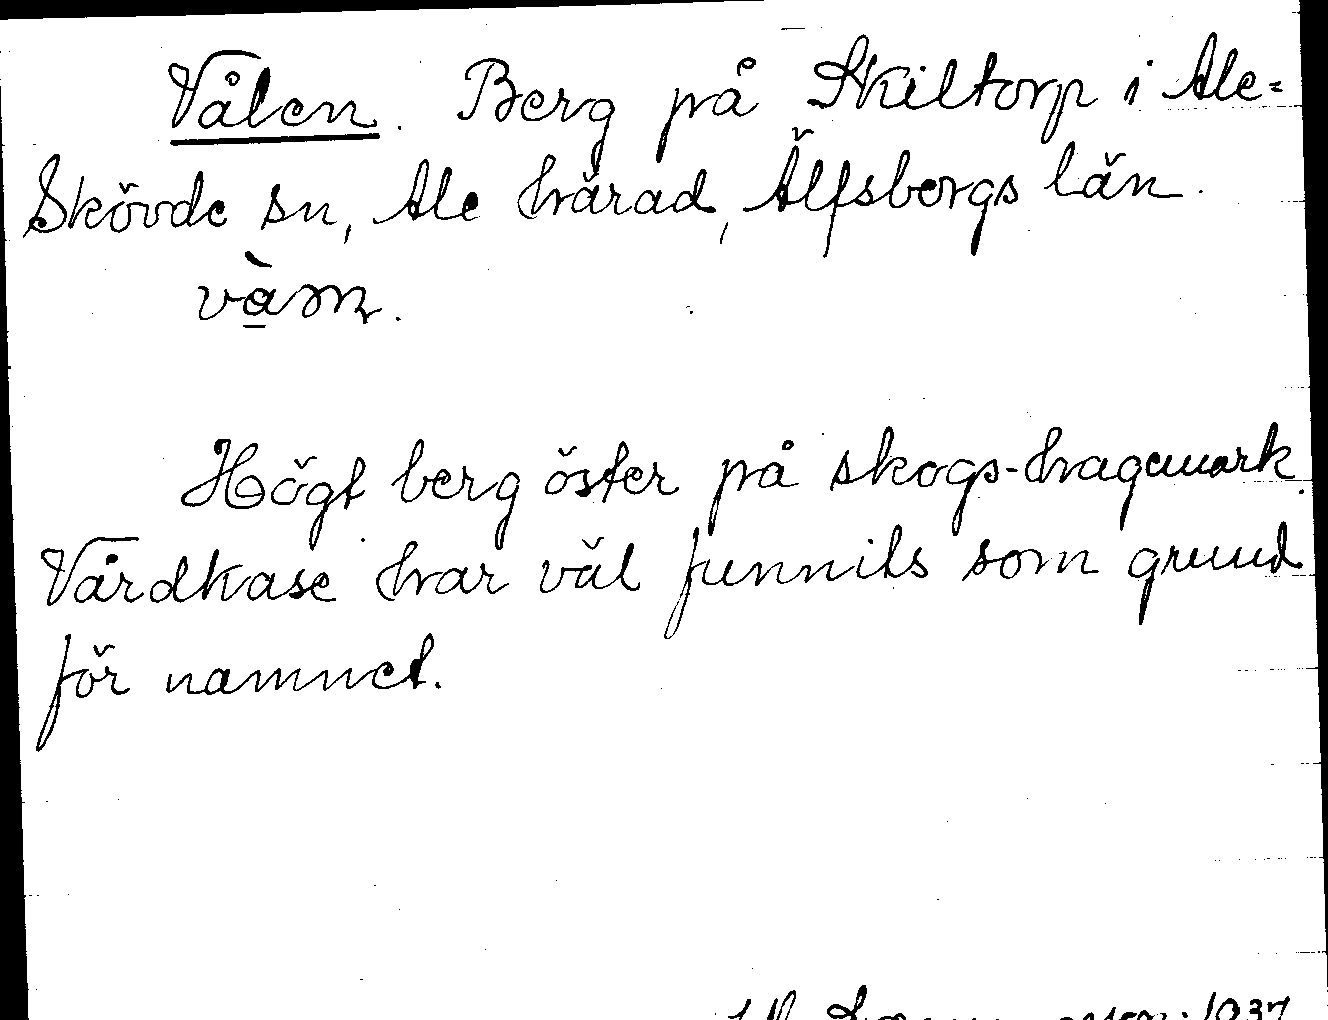 Vålen. Berg på Skiltorp i Ale=
Skövde sn, Ale härad, Älfsborgs län.
Högt berg öster på skogs-hagemark.
Vårdkase har väl funnits som grund
för namnet.
1937